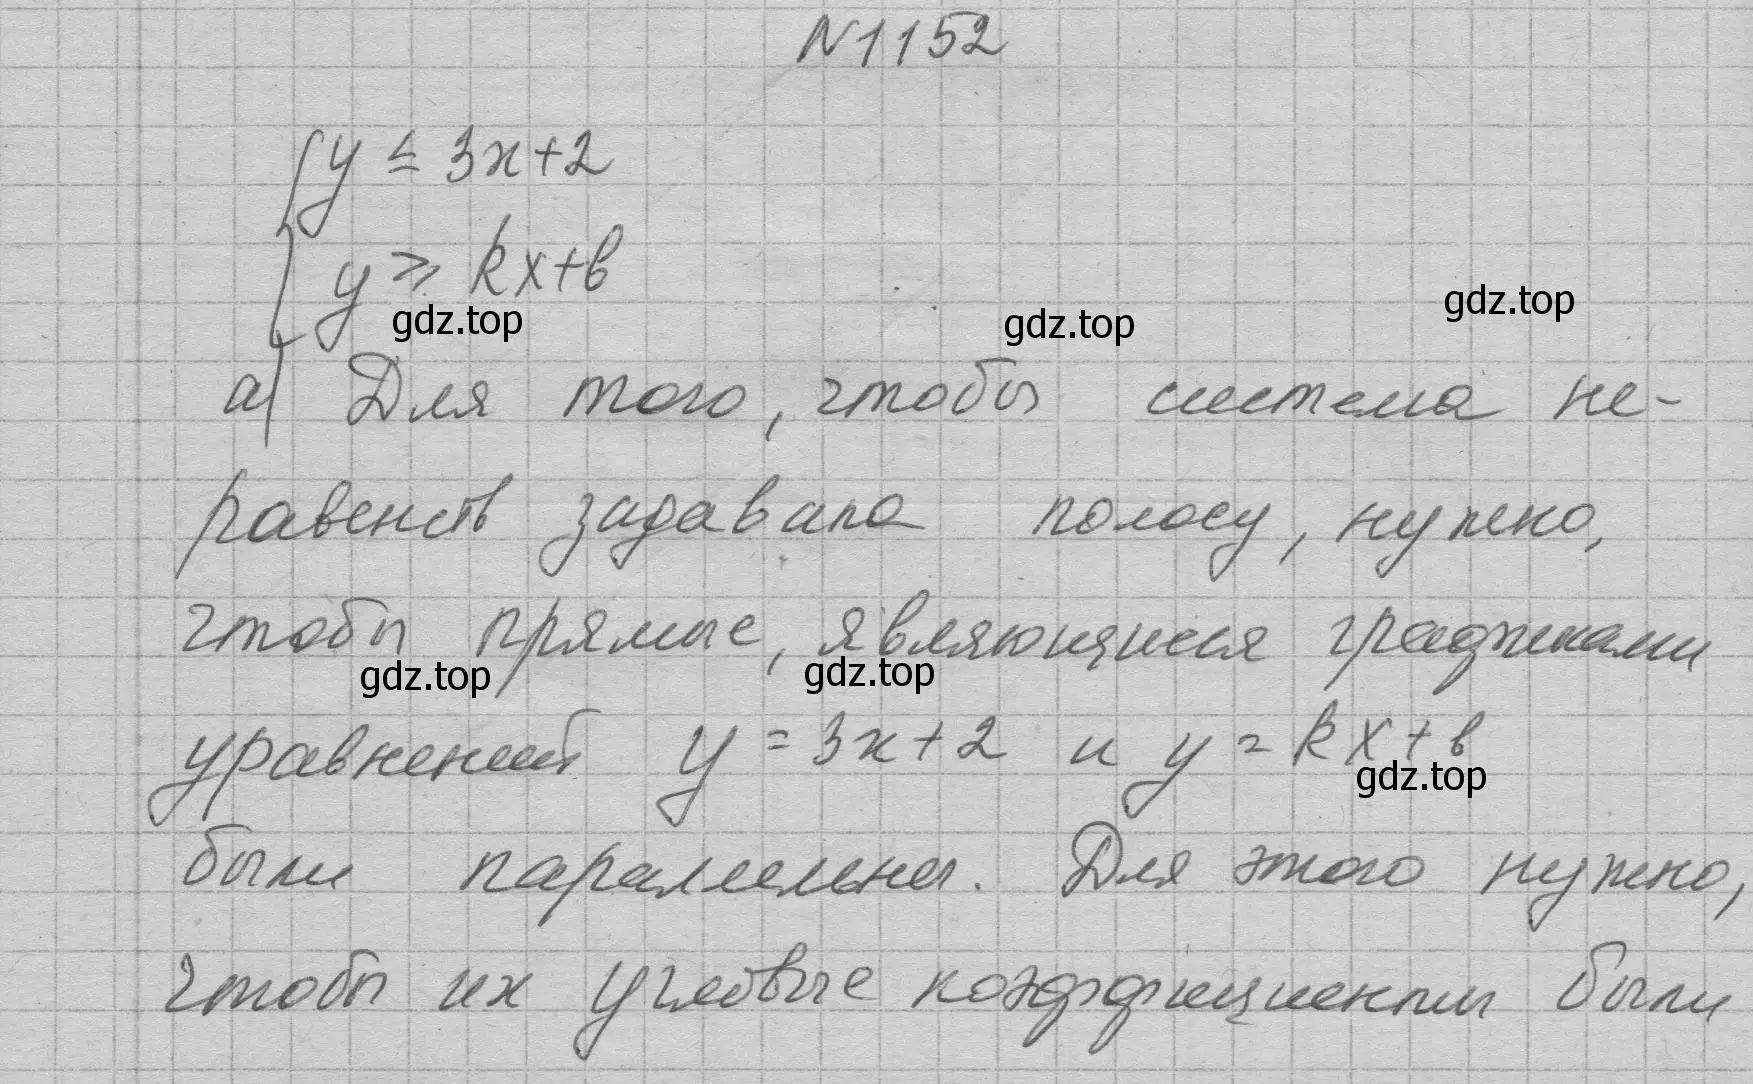 N1152
y ≤ 3x+2
y ≥ kx+b
gdz.top gdz.top gdz.top
а) Для того, чтобы система не-
равенств задавала полосу, нужно,
чтобы прямые, являющиеся графиками
gdz.top gdz.top
уравнений y = 3x+2 и y = kx+b
gdz.top
были параллельны. Для этого нужно,
чтобы их угловые коэффициенты были